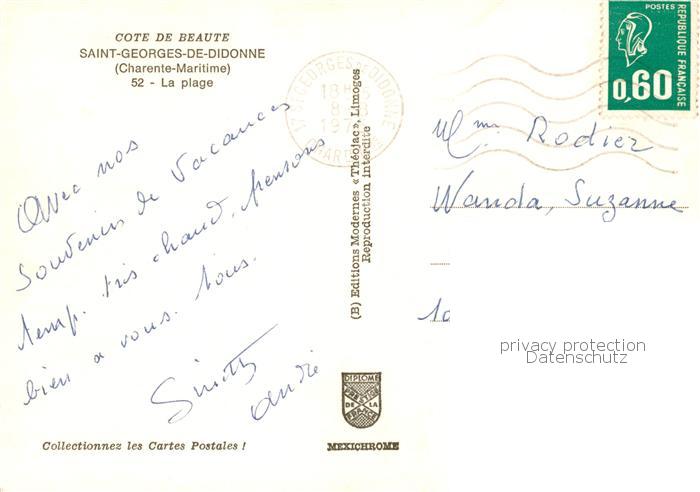 COTE DE BEAUTE
SAINT-GEORGES-DE-DIDONNE
(Charente-Maritime)
52 - La plage
Avec nos
Souvenirs de Vacances
temp. très chaud. Pensons
bien a vous. tous.
André
Collectionnez les Cartes Postales !
(B) Editions Modernes «Théojac», Limoges
Reproduction Interdite
17 ST GEORGES DE DIDONNE
18H
DIPLOME
PRESTIGE
DE LA
FRANCE
MEXICHROME
POSTES
REPUBLIQUE FRANÇAISE
0,60
Mme Rodier
Wanda, Suzanne
10
privacy protection
Datenschutz